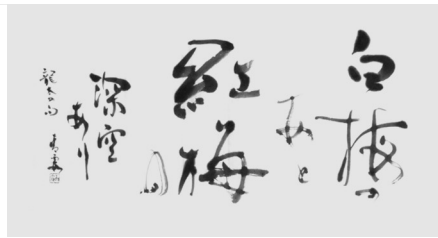 白梅の
あと
紅梅
の
深空
あり
龍太の句